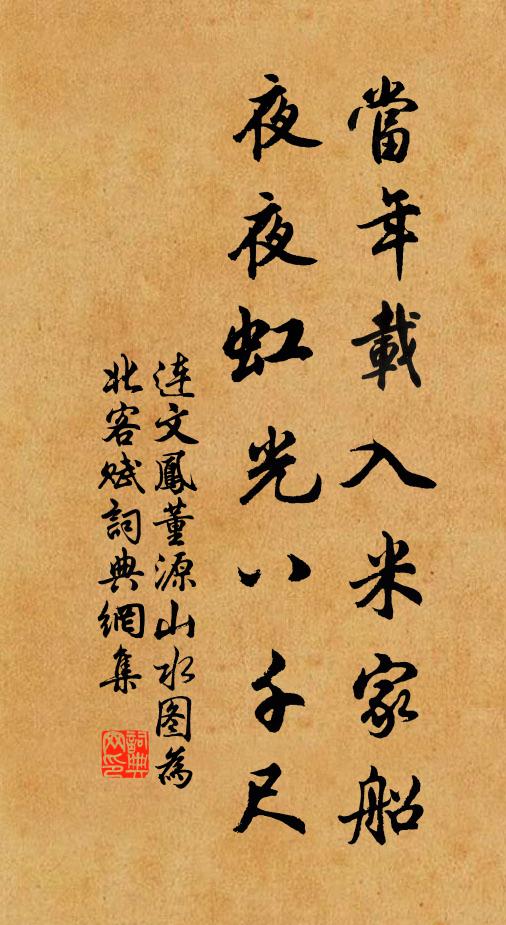 當年載入米家船
夜夜虹光八千尺
連文鳳董源山水图為
北客賦詞典網集
詞典網印